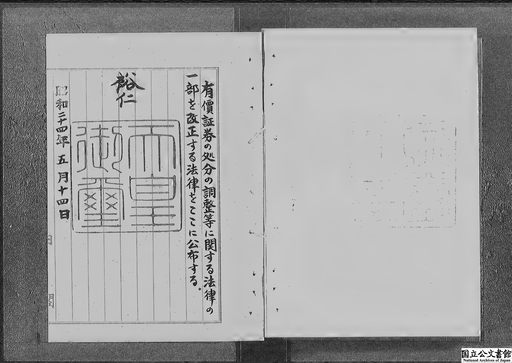 有價証券の処分の調整等に関する法律の
一部を改正する法律をここに公布する。
裕仁
天皇
御璽
昭和二十四年五月十四日
国立公文書館
National Archives of Japan